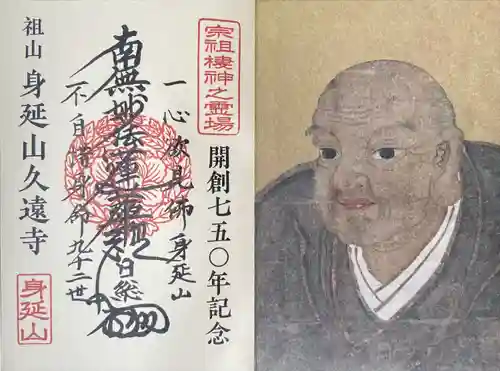 宗祖棲神之霊場
開創七五〇年記念
一心欲見佛身延山
南無妙法蓮華経
不自惜身命九十二世
日總
祖山 身延山久遠寺
身延山